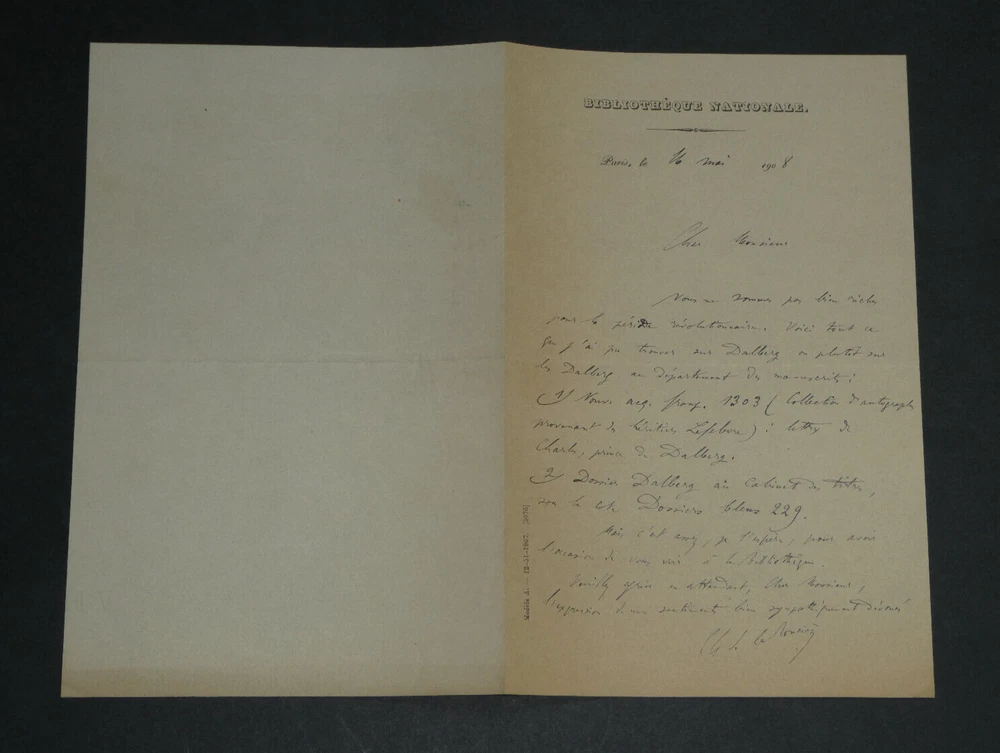 BIBLIOTHÈQUE NATIONALE.
Paris, le 16 mai 1908
Cher Monsieur
Nous ne sommes pas bien riches
pour la période révolutionnaire. Voici tout ce
que j'ai pu trouver sur Dalberg ou plutôt sur
les Dalberg au département des manuscrits :
1) Nouv. acq. franç. 1303 (Collection d'autographes
provenant des héritiers Lefebvre) : lettre de
Charles, prince de Dalberg.
2) Dossier Dalberg au Cabinet des titres,
sous la cote Dossiers bleus 229.
Mais c'est assez, je l'espère, pour avoir
l'occasion de vous voir à la Bibliothèque.
Veuillez agréer en attendant, Cher Monsieur,
l'expression de mes sentiments bien sympathiquement dévoués
Ch. de la Roncière
Modèle A. — 12-11-1907. [3876]